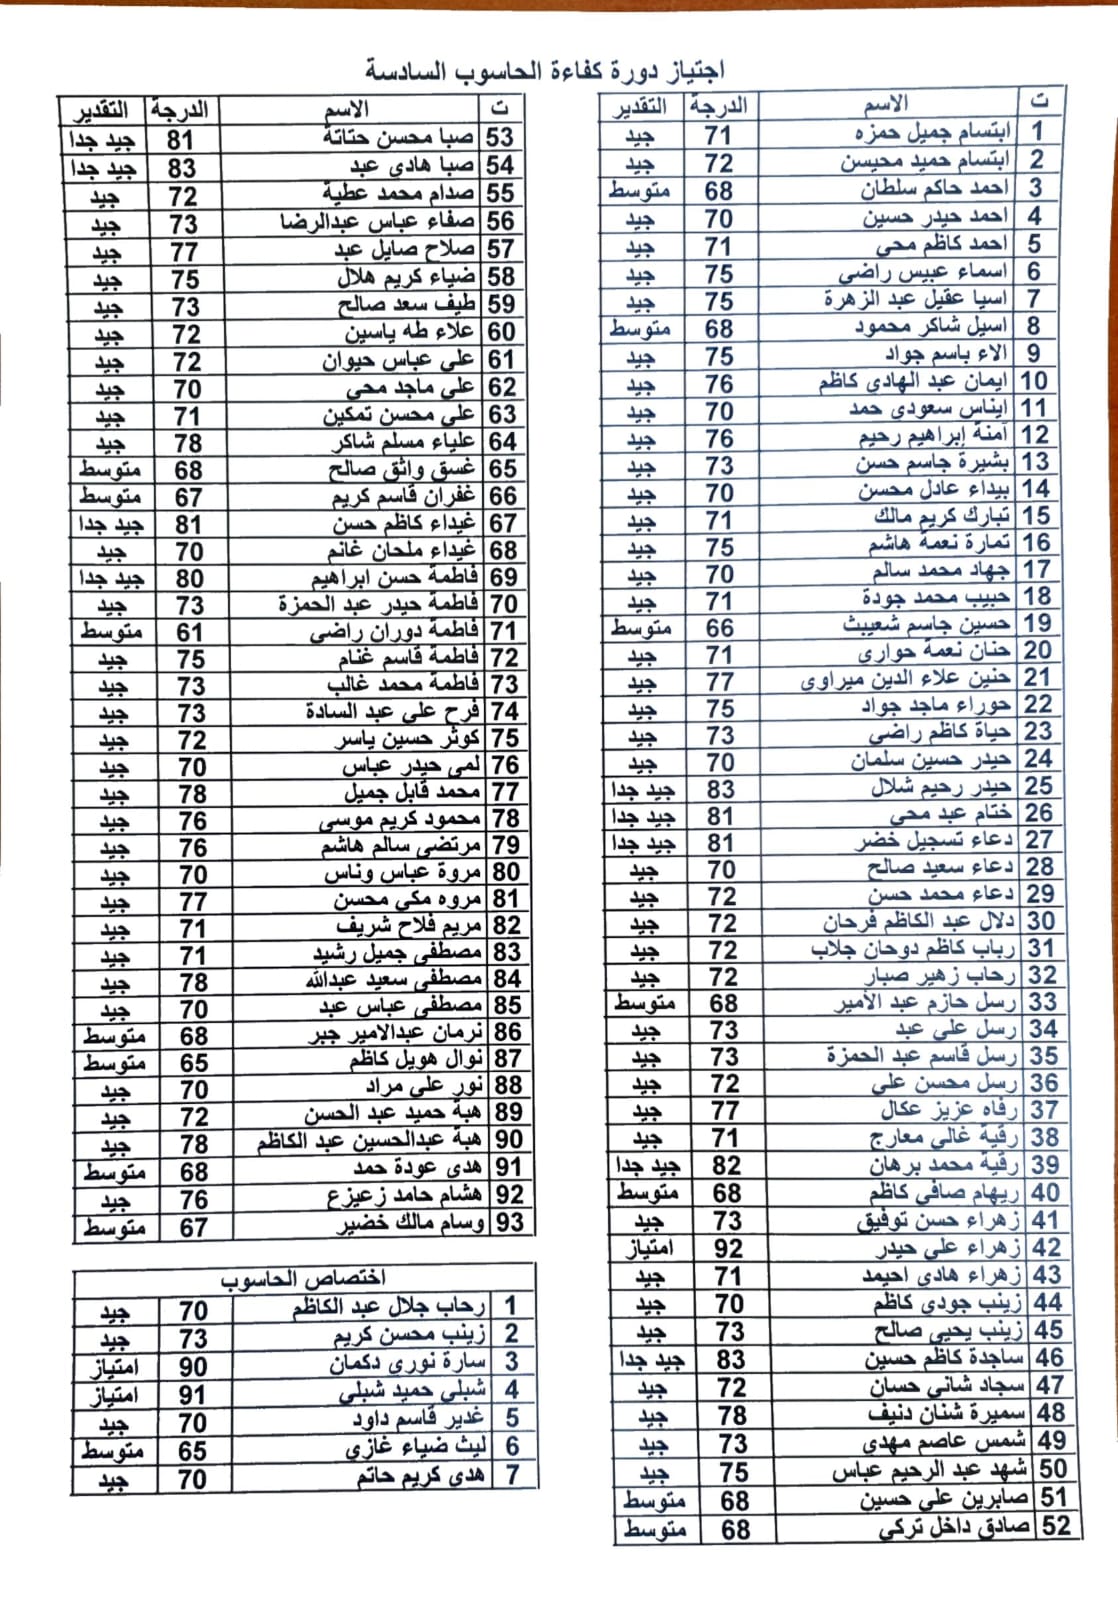 اجتياز دورة كفاءة الحاسوب السادسة
ت الاسم الدرجة التقدير
1 ابتسام جميل حمزه 71 جيد
2 ابتسام حميد محيسن 72 جيد
3 احمد حاكم سلطان 68 متوسط
4 احمد حيدر حسين 70 جيد
5 احمد كاظم محي 71 جيد
6 اسماء عبيس راضي 75 جيد
7 اسيا عقيل عبد الزهرة 75 جيد
8 اسيل شاكر محمود 68 متوسط
9 الاء باسم جواد 75 جيد
10 ايمان عبد الهادي كاظم 76 جيد
11 ايناس سعودي حمد 70 جيد
12 آمنة إبراهيم رحيم 76 جيد
13 بشيرة جاسم حسن 73 جيد
14 بيداء عادل محسن 70 جيد
15 تبارك كريم مالك 71 جيد
16 تمارة نعمة هاشم 75 جيد
17 جهاد محمد سالم 70 جيد
18 حبيب محمد جودة 71 جيد
19 حسين جاسم شعيبث 66 متوسط
20 حنان نعمة حواري 71 جيد
21 حنين علاء الدين ميراوي 77 جيد
22 حوراء ماجد جواد 75 جيد
23 حياة كاظم راضي 73 جيد
24 حيدر حسين سلمان 70 جيد
25 حيدر رحيم شلال 83 جيد جدا
26 ختام عبد محي 81 جيد جدا
27 دعاء تسجيل خضر 81 جيد جدا
28 دعاء سعيد صالح 70 جيد
29 دعاء محمد حسن 72 جيد
30 دلال عبد الكاظم فرحان 72 جيد
31 رباب كاظم دوحان جلاب 72 جيد
32 رحاب زهير صبار 72 جيد
33 رسل حازم عبد الأمير 68 متوسط
34 رسل علي عبد 73 جيد
35 رسل قاسم عبد الحمزة 73 جيد
36 رسل محسن علي 72 جيد
37 رفاه عزيز عكال 77 جيد
38 رقية غالي معارج 71 جيد
39 رقية محمد برهان 82 جيد جدا
40 ريهام صافي كاظم 68 متوسط
41 زهراء حسن توفيق 73 جيد
42 زهراء علي حيدر 92 امتياز
43 زهراء هادي احيمد 71 جيد
44 زينب جودي كاظم 70 جيد
45 زينب يحيى صالح 73 جيد
46 ساجدة كاظم حسين 83 جيد جدا
47 سجاد شاني حسان 72 جيد
48 سميرة شنان دنيف 78 جيد
49 شمس عاصم مهدي 73 جيد
50 شهد عبد الرحيم عباس 75 جيد
51 صابرين علي حسين 68 متوسط
52 صادق داخل تركي 68 متوسط
ت الاسم الدرجة التقدير
53 صبا محسن حتاتة 81 جيد جدا
54 صبا هادي عبد 83 جيد جدا
55 صدام محمد عطية 72 جيد
56 صفاء عباس عبدالرضا 73 جيد
57 صلاح صايل عبد 77 جيد
58 ضياء كريم هلال 75 جيد
59 طيف سعد صالح 73 جيد
60 علاء طه ياسين 72 جيد
61 علي عباس حيوان 72 جيد
62 علي ماجد محي 70 جيد
63 علي محسن تمكين 71 جيد
64 علياء مسلم شاكر 78 جيد
65 غسق واثق صالح 68 متوسط
66 غفران قاسم كريم 67 متوسط
67 غيداء كاظم حسن 81 جيد جدا
68 غيداء ملحان غانم 70 جيد
69 فاطمة حسن ابراهيم 80 جيد جدا
70 فاطمة حيدر عبد الحمزة 73 جيد
71 فاطمة دوران راضي 61 متوسط
72 فاطمة قاسم غنام 75 جيد
73 فاطمة محمد غالب 73 جيد
74 فرح علي عبد السادة 73 جيد
75 كوثر حسين ياسر 72 جيد
76 لمى حيدر عباس 70 جيد
77 محمد قابل جميل 78 جيد
78 محمود كريم موسى 76 جيد
79 مرتضى سالم هاشم 76 جيد
80 مروة عباس وناس 70 جيد
81 مروه مكي محسن 77 جيد
82 مريم فلاح شريف 71 جيد
83 مصطفى جميل رشيد 71 جيد
84 مصطفى سعيد عبدالله 78 جيد
85 مصطفى عباس عبد 70 جيد
86 نرمان عبدالامير جبر 68 متوسط
87 نوال هويل كاظم 65 متوسط
88 نور علي مراد 70 جيد
89 هبة حميد عبد الحسن 72 جيد
90 هبة عبدالحسين عبد الكاظم 78 جيد
91 هدى عودة حمد 68 متوسط
92 هشام حامد زعيزع 76 جيد
93 وسام مالك خضير 67 متوسط
اختصاص الحاسوب
1 رحاب جلال عبد الكاظم 70 جيد
2 زينب محسن كريم 73 جيد
3 سارة نوري دكمان 90 امتياز
4 شبلي حميد شبلي 91 امتياز
5 غدير قاسم داود 70 جيد
6 ليث ضياء غازي 65 متوسط
7 هدى كريم حاتم 70 جيد